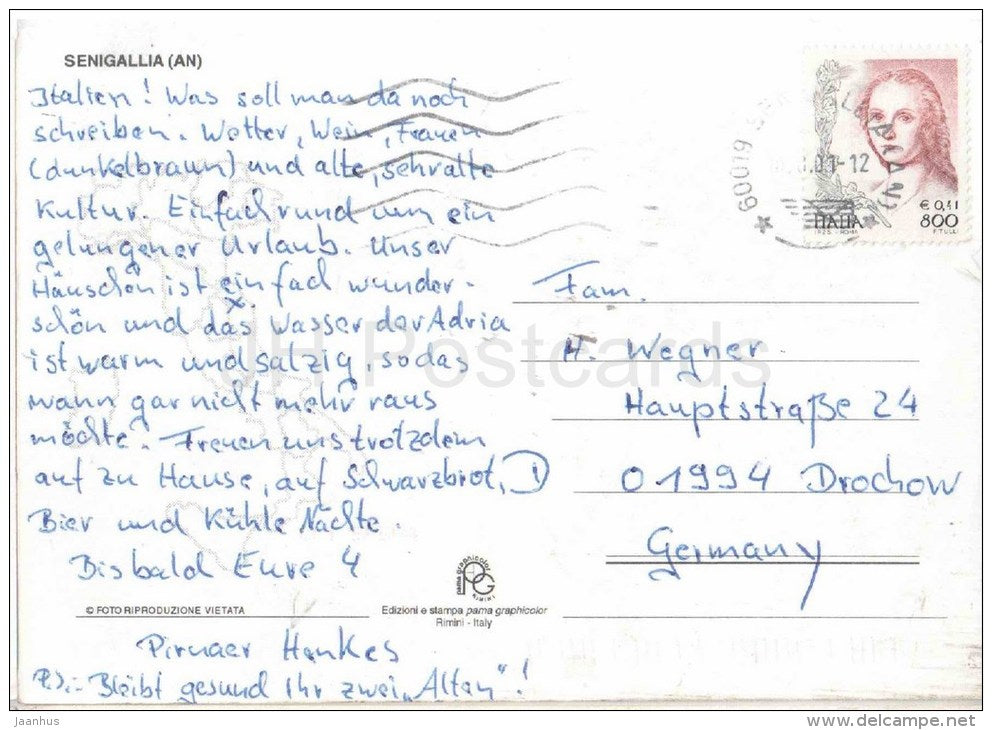 SENIGALLIA (AN)
Italien! Was soll man da noch
schreiben. Wetter, Wein, Frauen
(dunkelbraun) und alte, sehr alte
Kultur. Einfach rund um ein
gelungener Urlaub. Unser
Häuschen ist einfach wunder-
schön und das Wasser der Adria
ist warm und salzig, sodas
mann gar nicht mehr raus
möchte. Freuen uns trotzdem
auf zu Hause, auf Schwarzbrot,
Bier und Kühle Nächte.
Bisbald Eure 4
© FOTO RIPRODUZIONE VIETATA
Pirnaer Henkes
P.S.: Bleibt gesund Ihr zwei "Alten"!
pama graphicolor
PG
RIMINI
Edizioni e stampa pama graphicolor
Rimini - Italy
60019
01-12
€ 0,41
800
ITALIA
F. TULLI
Fam.
H. Wegner
Hauptstraße 24
D 01994 Drochow
Germany
JH Postcards
Jaanhus
www.delcampe.net